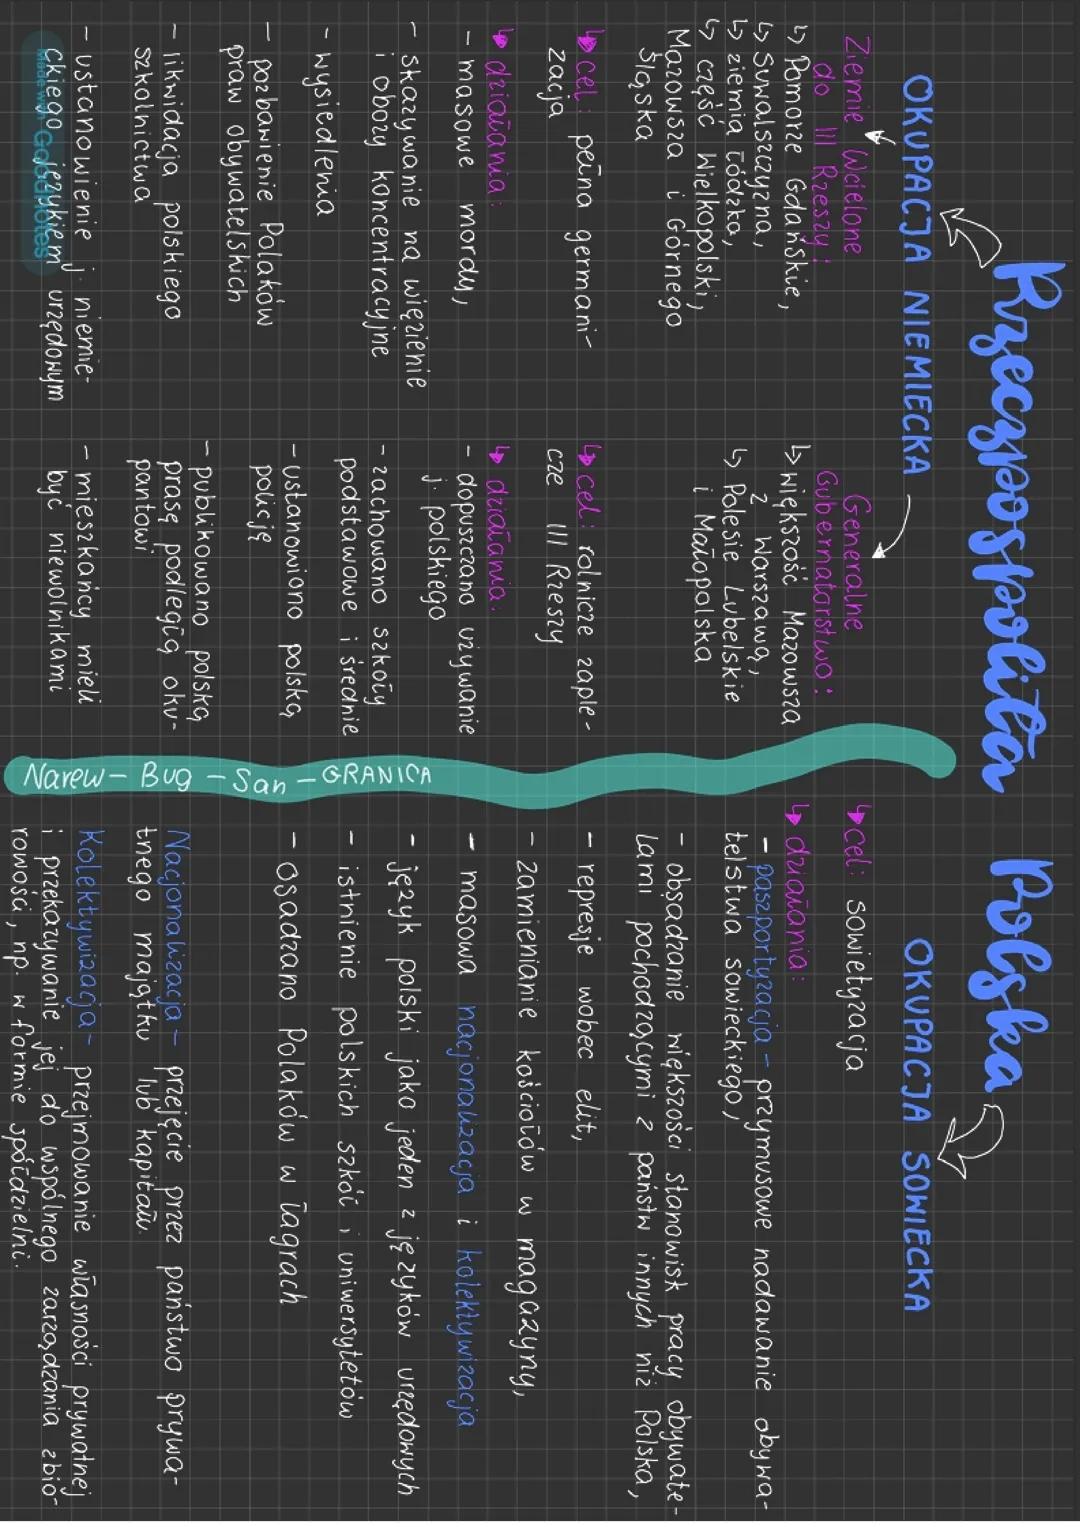 Rzeczpospolita Polska
OKUPACJA NIEMIECKA
Ziemie Wcielone
do III Rzeszy:
↳ Pomorze Gdańskie,
↳ Suwalszczyzna,
↳ ziemia łódzka,
↳ część Wielkopolski,
Mazowsza i Górnego
Śląska
↳ cel: pełna germani-
zacja
↳ działania:
- masowe mordy,
- skazywanie na więzienie
i obozy koncentracyjne
- wysiedlenia
- pozbawienie Polaków
praw obywatelskich
- likwidacja polskiego
szkolnictwa
- ustanowienie j. niemie-
ckiego językiem urzędowym
Made with Goodnotes
Generalne
Gubernatorstwo:
↳ większość Mazowsza
z Warszawą,
↳ Polesie Lubelskie
i Małopolska
↳ cel: rolnicze zaple-
cze III Rzeszy
↳ działania:
- dopuszczano używanie
j. polskiego
- zachowano szkoły
podstawowe i średnie
- ustanowiono polską
policję
- publikowano polską
prasę podległą oku-
pantowi
- mieszkańcy mieli
być niewolnikami
Narew - Bug - San - GRANICA
OKUPACJA SOWIECKA
↳ cel: sowietyzacja
↳ działania:
- paszportyzacja - przymusowe nadawanie obywa-
telstwa sowieckiego,
- obsadzanie większości stanowisk pracy obywate-
lami pochodzącymi z państw innych niż Polska,
- represje wobec elit,
- zamienianie kościołów w magazyny,
- masowa nacjonalizacja i kolektywizacja
- język polski jako jeden z języków urzędowych
- istnienie polskich szkół i uniwersytetów
- osadzano Polaków w łagrach
Nacjonalizacja - przejęcie przez państwo prywa-
tnego majątku lub kapitału.
Kolektywizacja - przejmowanie własności prywatnej
i przekazywanie jej do wspólnego zarządzania zbio-
rowości, np. w formie spółdzielni.